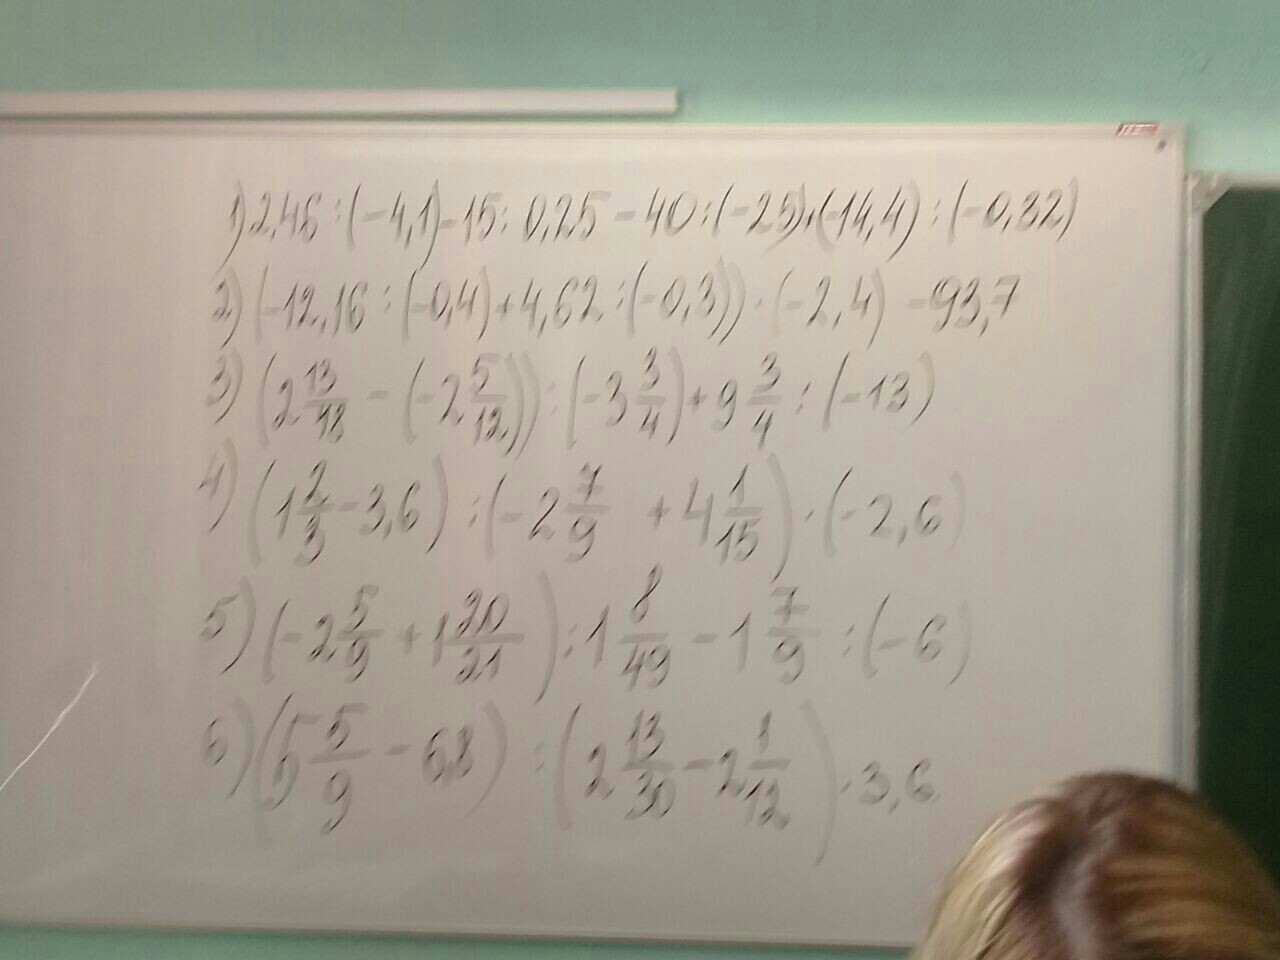 1) 2,46 : (-4,1) - 15 : 0,25 - 40 : (-25) + (-14,4) : (-0,32)
2) (-12,16 : (-0,4) + 4,62 : (-0,3)) · (-2,4) - 93,7
3) (2 13/18 - (-2 5/12)) : (-3 3/4) + 9 3/4 : (-13)
4) (1 2/3 - 3,6) : (-2 7/9 + 4 1/15) · (-2,6)
5) (-2 5/9 + 1 20/21) : 1 8/49 - 1 7/9 : (-6)
6) (5 5/9 - 6,8) : (2 13/30 - 2 1/12) · 3,6